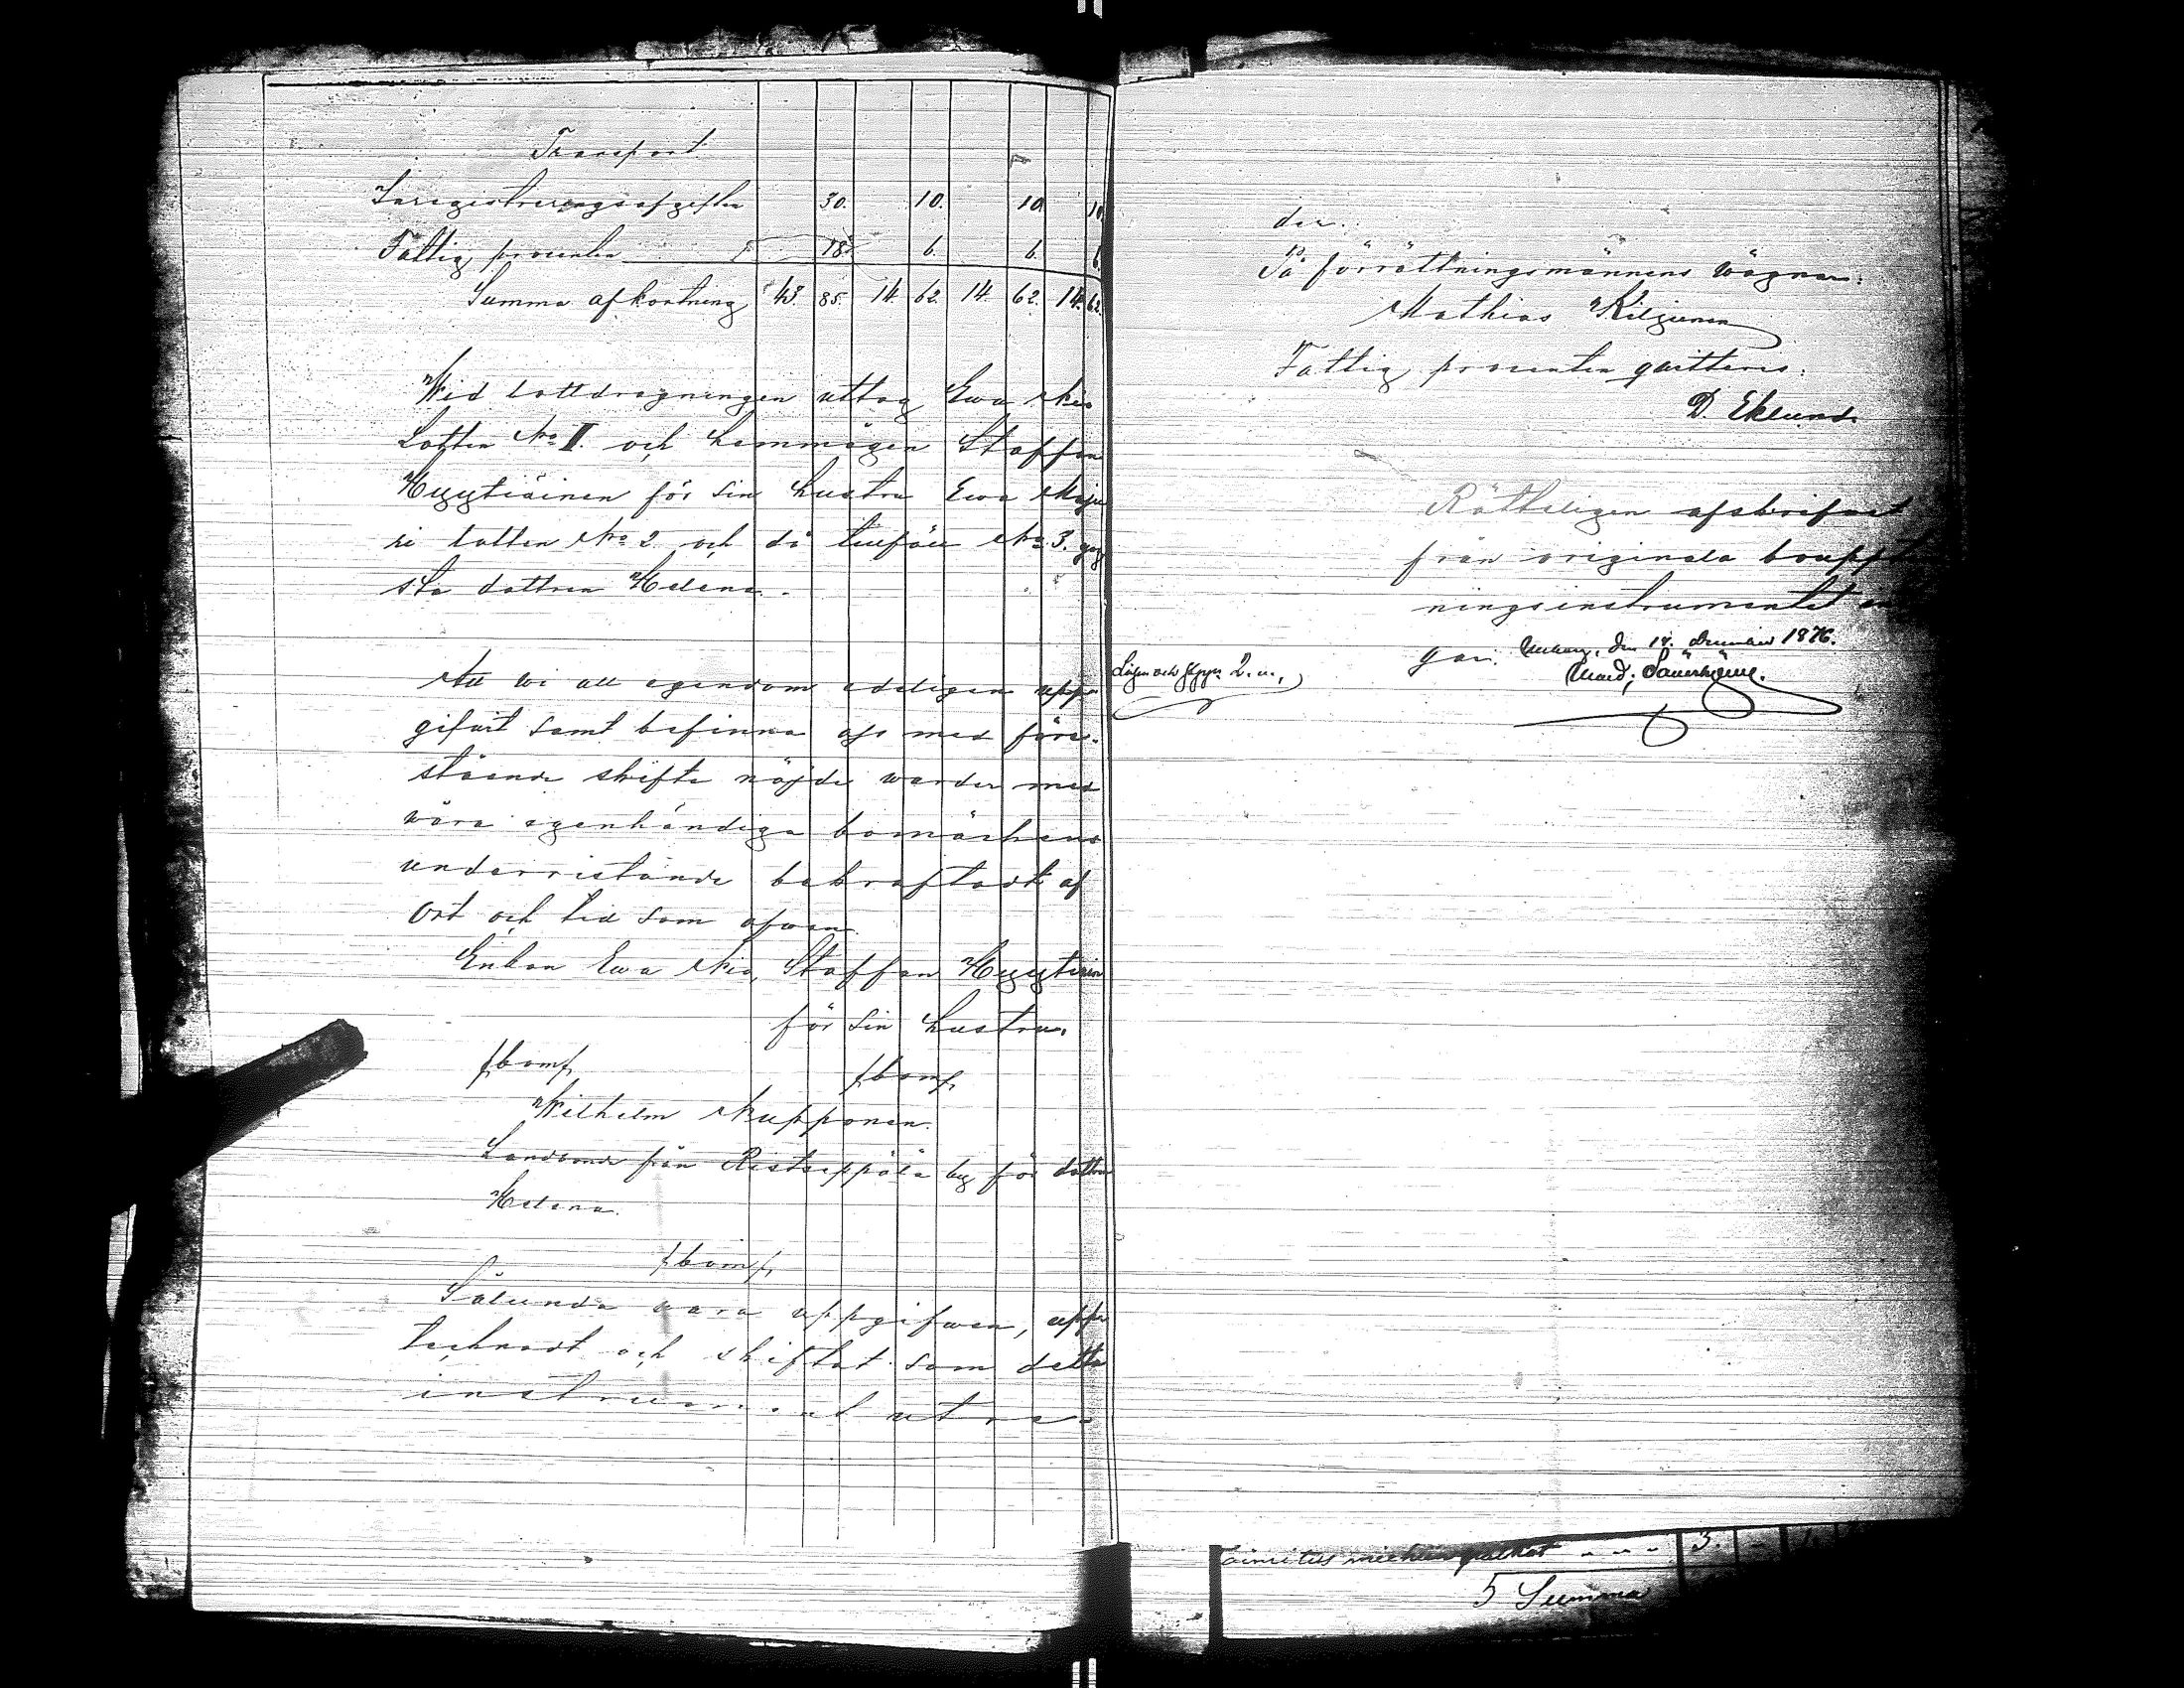 Transport
Inregistreringsafgiften 30. 10. 10. 10
Fattig procenten 18. 6. 6. 6.
Summa afkortning 43. 85. 14. 62. 14. 62. 14. 62.
Wid lottdragningen uttog Ewa Mia
Lotten No II. och hemmågen Staffan
Hyytiäinen för sin hustru Ewa Maja
ni lotten No 2 och då tillföll No 3. yng
sta dottren Helena.
Att wi all egendom edeligen uppe
gifwit samt befinna oss med före-
stående skifte nöjde warder med
wåra egenhändiga bomärkens
underristande bekräftadt af
Ort och tid som ofwan.
Enkan Ewa Mia, Staffan Hyytiäin
för sin hustru.
/:bom:/ /:bom:/
Wilhelm Mupponen.
Landbonde från Ristseppälä by för dottren
Helena.
/:bom:/
Sålunda wara uppgifwen, uppe
tecknadt och skiftat som detta
instrument utre-
der.
På förrättningsmännens wägnar:
Mathias Kiljunen
Fattig procenten qvitteris:
D. Eklund.
Rätteligen afskrifwet
från originala bouppt
ningsinstrumentet
gar. den 18. December 1876.
Lösen och 2. m.,
5 Summa
3.